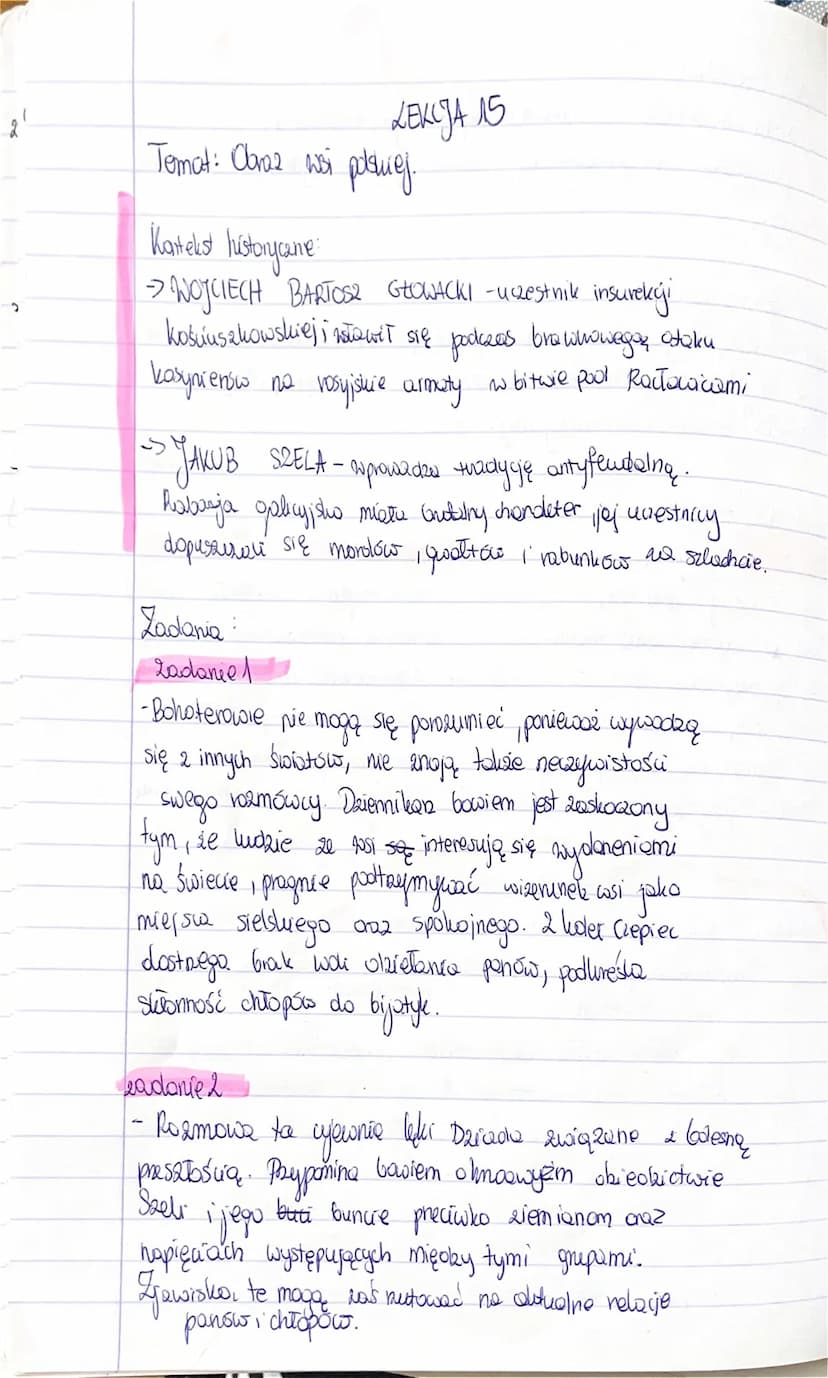 2
LEKCJA 15
Temat: Obraz wsi polskiej.
Kontekst historyczne:
→ WOJCIECH BARTOSZ GŁOWACKI - uczestnik insurekcji
kościuszkowskiej i wsławił się podczas brawurowego ataku
kosynierów na rosyjskie armaty w bitwie pod Racławicami
→ JAKUB SZELA - wprowadza tradycję antyfeudalną.
Rabacja galicyjska miała brutalny charakter, jej uczestnicy
dopuszczali się mordów, gwałtów i rabunków na szlachcie.
Zadania:
zadanie 1
- Bohaterowie nie mogą się porozumieć, ponieważ wywodzą
się z innych światów, nie znają także rzeczywistości
swego rozmówcy. Dziennikarz bowiem jest zaskoczony
tym, że ludzie ze wsi są interesują się wydarzeniami
na świecie, pragnie podtrzymywać wizerunek wsi jako
miejsca sielskiego oraz spokojnego. Z kolei Czepiec
dostrzega brak woli działania panów, podkreśla
skłonność chłopów do bijatyk.
zadanie 2
- Rozmowa ta ujawnia lęki Dziada związane z bolesną
przeszłością. Przypomina bowiem o krwawym
Szeli i jego buncie przeciwko ziemianom oraz
napięciach występujących między tymi grupami.
Zjawiska te mogą zaś rzutować na aktualne relacje
panów i chłopów.